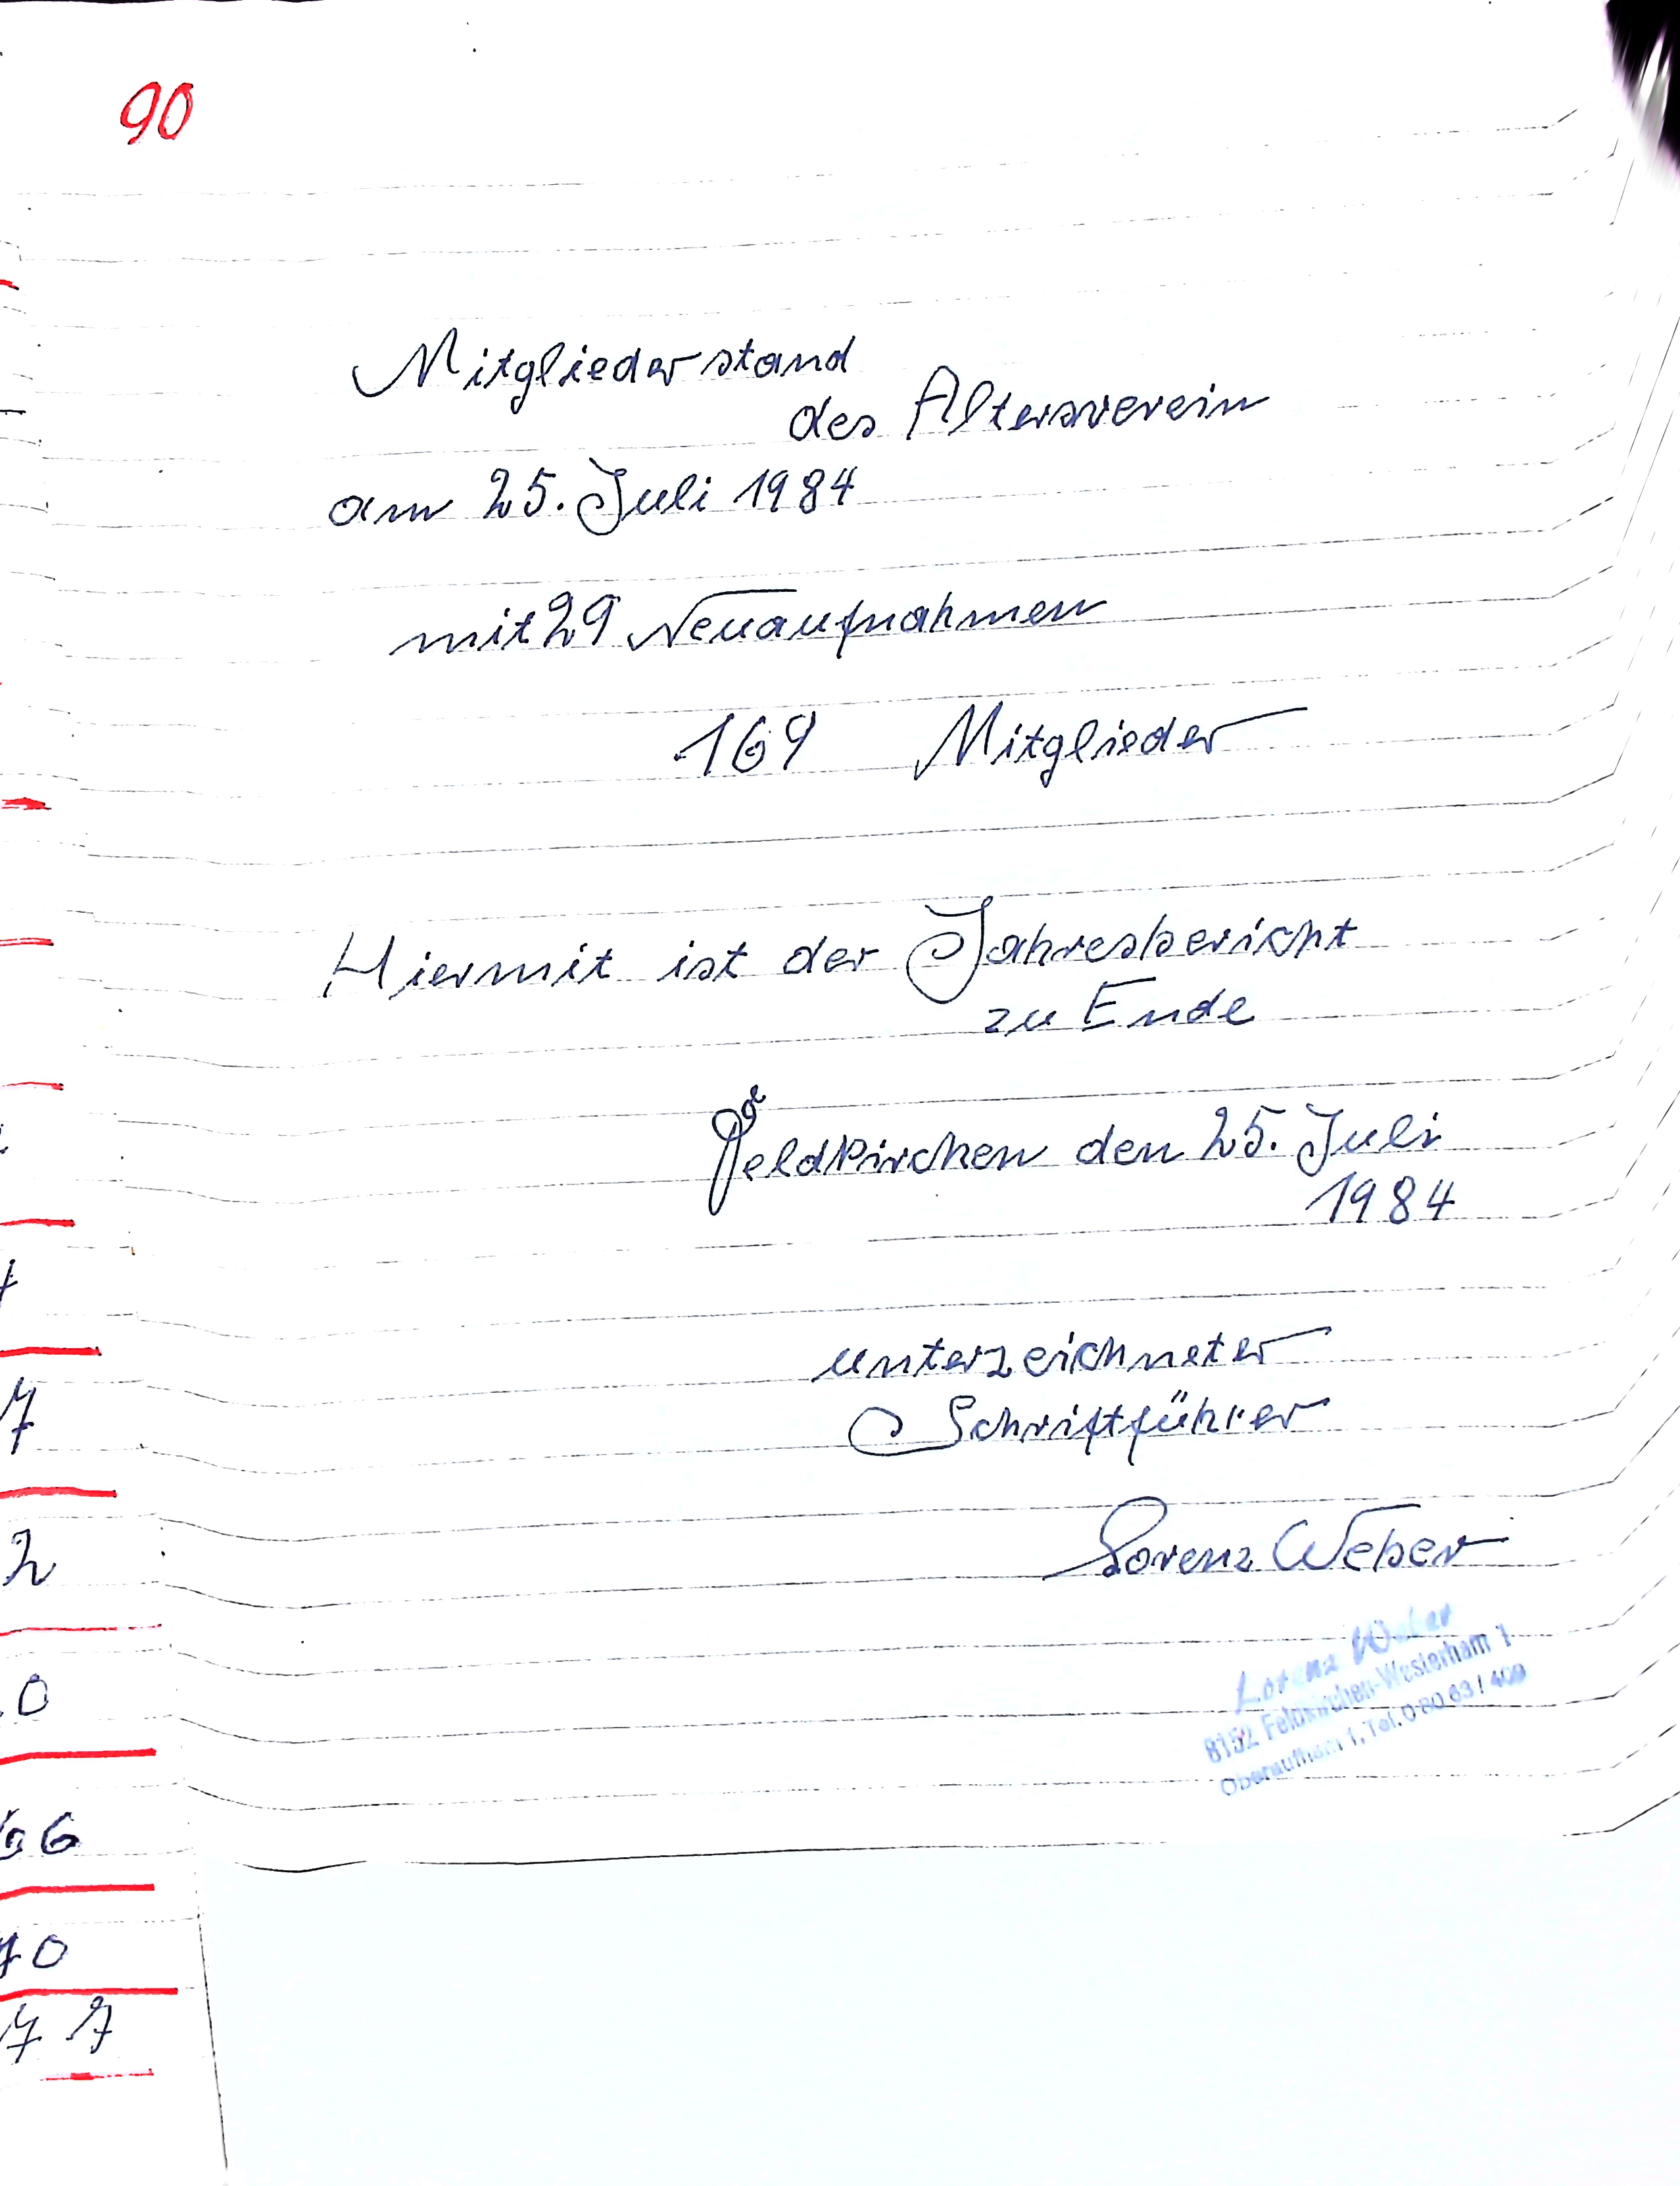 90
Mitgliederstand
des Altersverein
am 25. Juli 1984
mit 29 Neuaufnahmen
169 Mitglieder
Hiermit ist der Jahresbericht
zu Ende
Feldkirchen den 25. Juli
1984
unterzeichneter
Schriftführer
Lorenz Weber
Lorenz Weber
8152 Feldkirchen-Westerham 1
Oberaufham 1, Tel. 0 80 63 / 409
7
2
0
66
70
77